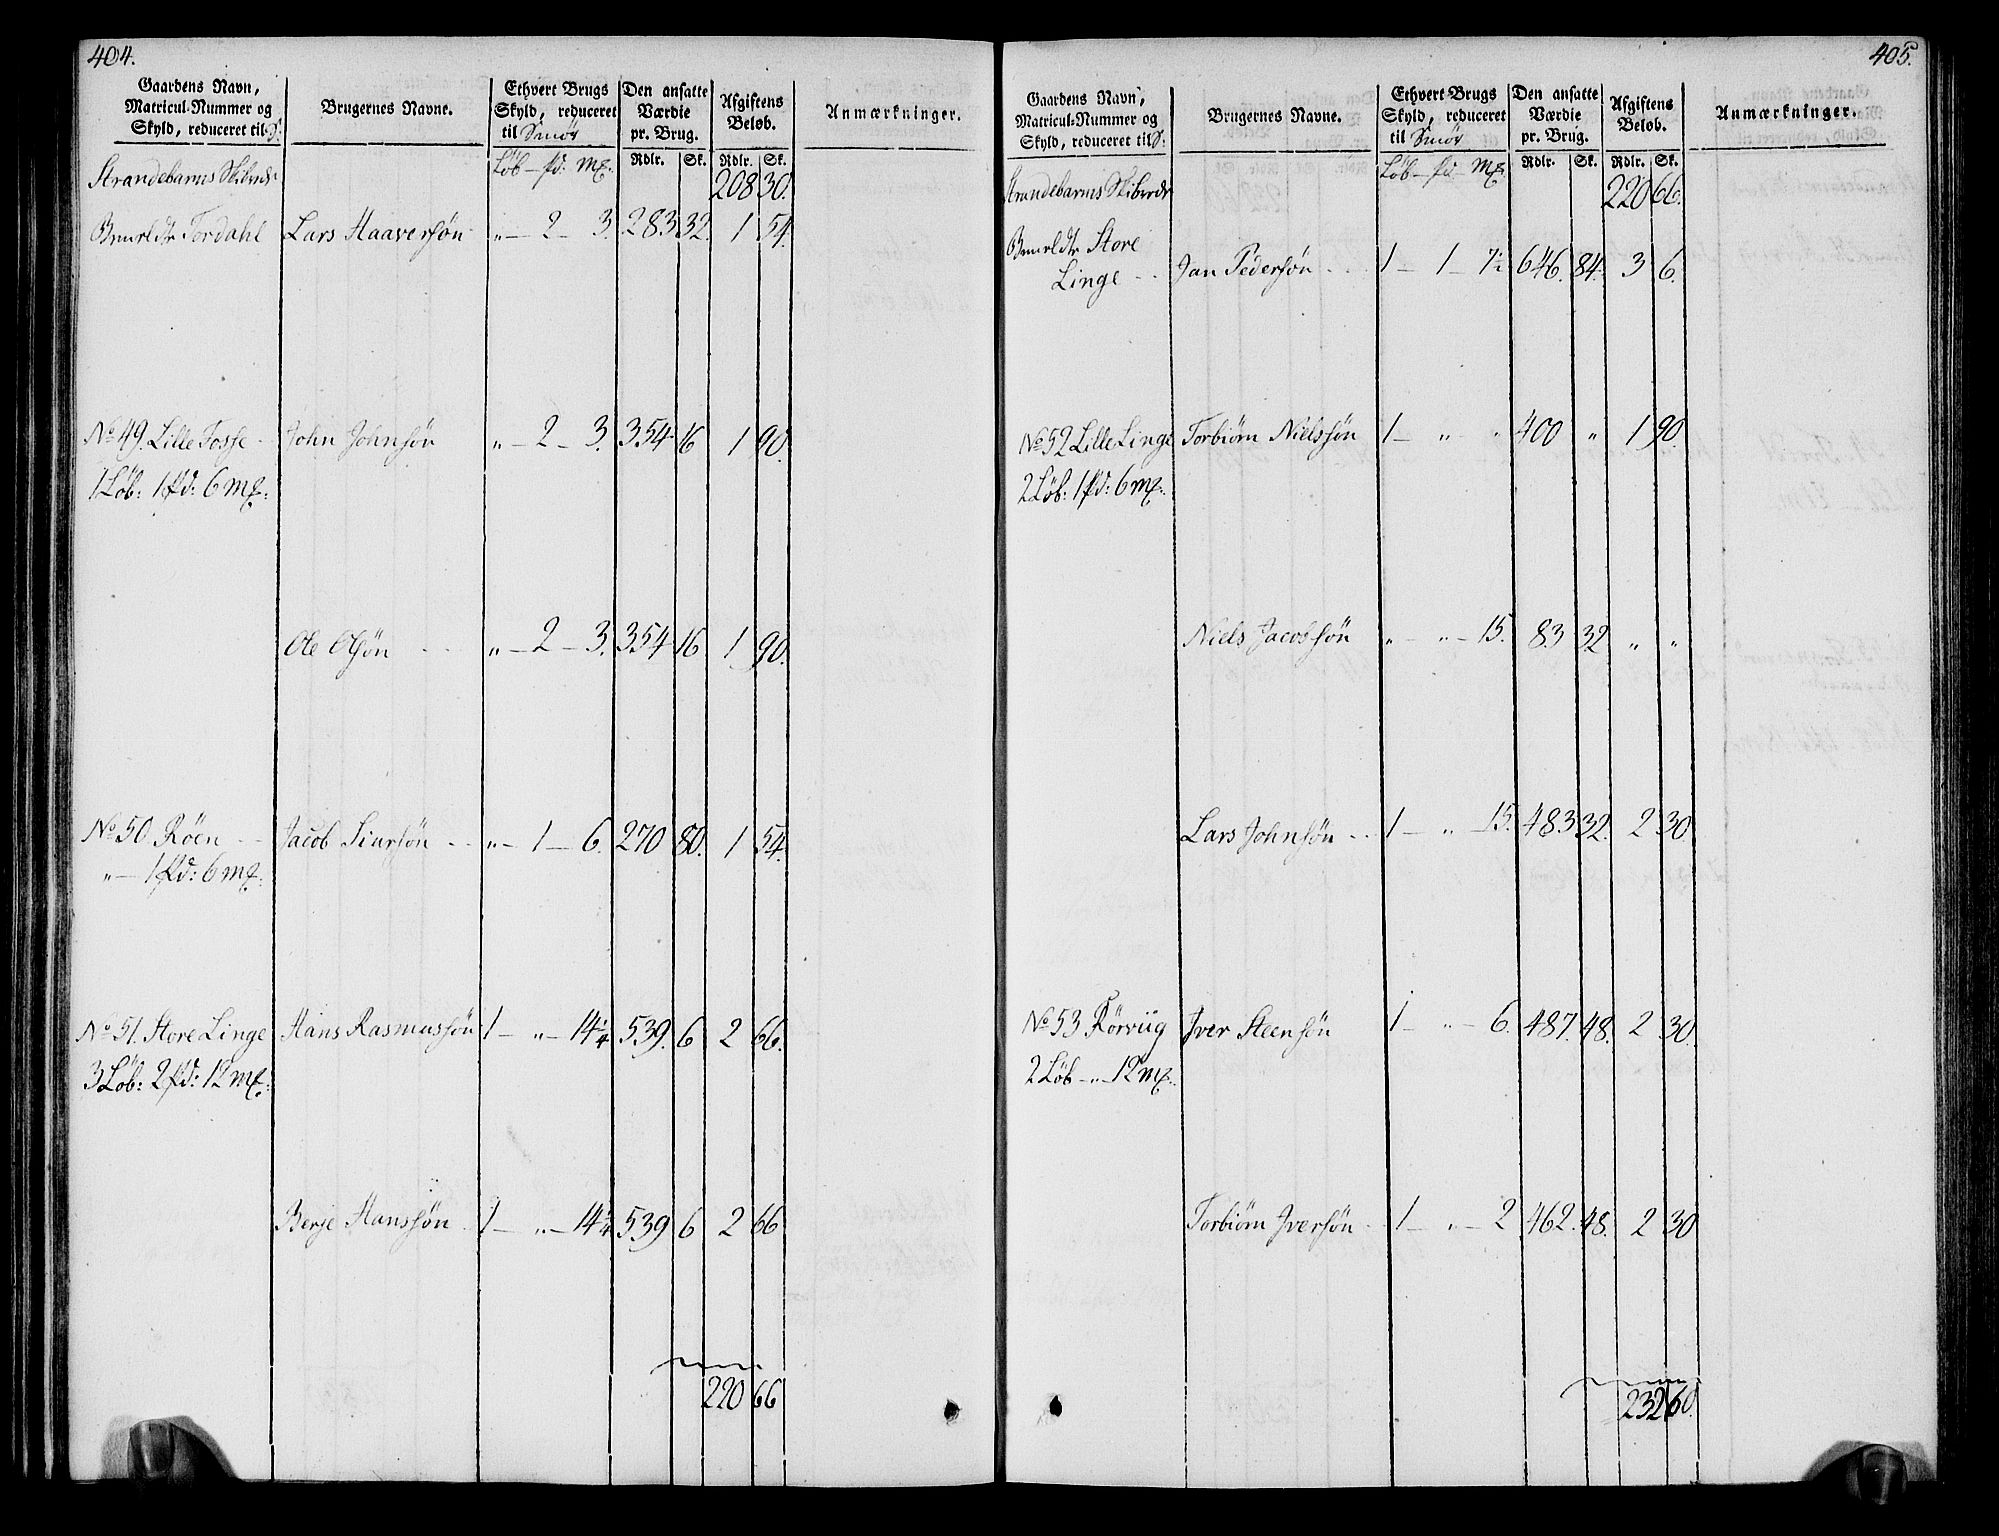 404.
Gaardens Navn, Matricul-Nummer og Skyld, reduceret til S:
Brugernes Navne.
Ethvert Brugs Skyld, reduceret til Smør
Den ansatte Værdie pr. Brug.
Afgiftens Beløb.
Anmærkninger.
Løb – pd: mg. Rdlr. Sk. Rdlr. Sk.
Strandebarms Skibrede 208 30.
Tordahl Lars Haaversøn „ – 2 – 3. 283 32. 1 54.
No 49. Lille Fosse John Johnsøn „ – 2 – 3. 354 16 1 90.
1 Løb: 1 pd: 6 mg:
Ole Olsøn „ – 2 – 3. 354 16 1 90.
No 50. Röen Jacob Siursøn „ – 1 – 6. 270 80. 1 54.
„ – 1 pd: 6 mg:
No 51. Store Linge Hans Rasmussøn 1 – „ – 14 1/4 539. 6 2 66.
3 Løb: 2 pd: 12 mg:
Berje Hanssøn 1 – „ – 14 1/4 539 6 2 66
220 66
405.
Gaardens Navn, Matricul-Nummer og Skyld, reduceret til S:
Brugernes Navne.
Ethvert Brugs Skyld, reduceret til Smør
Den ansatte Værdie pr. Brug.
Afgiftens Beløb.
Anmærkninger.
Løb – pd – mg Rdlr. Sk. Rdlr. Sk.
Strandebarms Skibrede 220 66.
Store
Linge Jan Pedersøn 1 – 1 – 7 1/2 646. 84. 3 6.
No 52 Lille Linge Torbiörn Nielssøn 1 – „ „ 400 „ 1 90.
2 Løb: 1 pd: 6 mg:
Niels Jacobssøn „ – „ – 15. 83 32 „ „
Lars Johnsøn 1 – „ – 15. 483 32. 2 30
No 53 Rörviig Iver Steensøn 1 – „ – 6. 487. 48. 2 30.
2 Løb – „ – 12 mg:
Torbiörn Iversøn 1 – „ – 2 462. 48. 2 30
232 60.